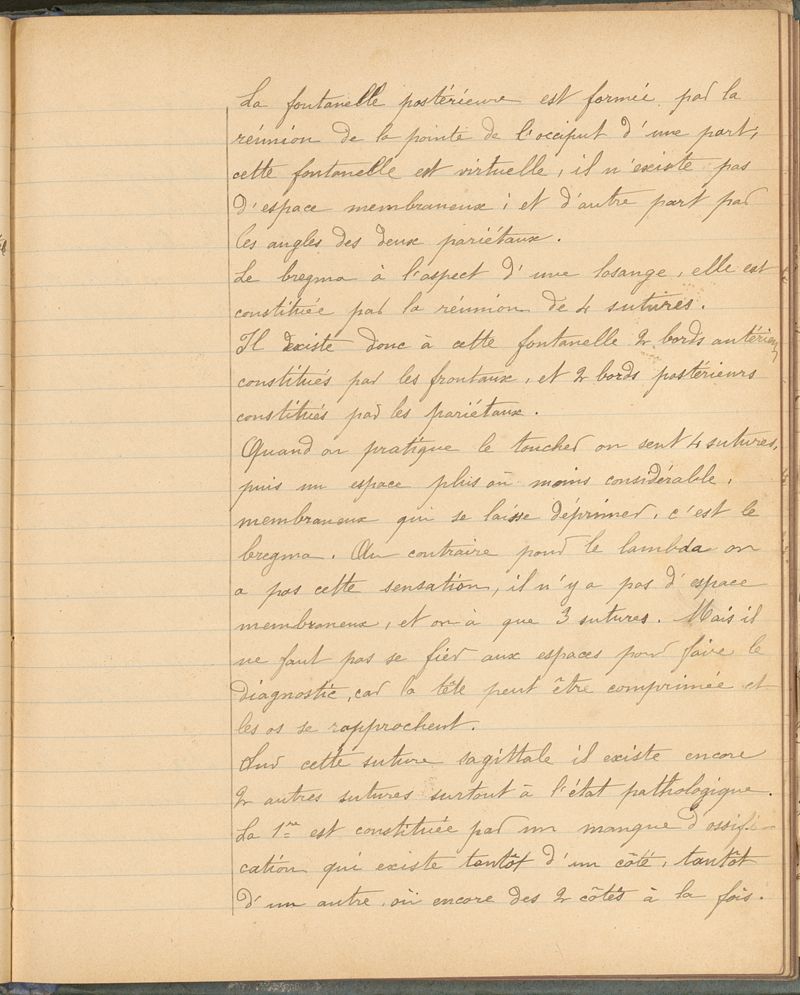 La fontanelle postérieure est formée par la
réunion de la pointe de l'occiput d'une part,
cette fontanelle est virtuelle, il n'existe pas
d'espace membraneux ; et d'autre part par
les angles des deux pariétaux.
Le bregma à l'aspect d'une losange, elle est
constituée par la réunion de 4 sutures.
Il existe donc à cette fontanelle 2 bords antérieurs
constitués par les frontaux, et 2 bords postérieurs
constitués par les pariétaux.
Quand on pratique le toucher on sent 4 sutures,
puis un espace plus où moins considérable,
membraneux qui se laisse déprimer, c'est le
bregma. Au contraire pour le lambda on
a pas cette sensation, il n'y a pas d'espace
membraneux, et on à que 3 sutures. Mais il
ne faut pas se fier aux espaces pour faire le
diagnostic, car la tête peut être comprimée et
les os se rapprochent.
Sur cette suture sagittale il existe encore
2 autres sutures surtout à l'état pathologique.
La 1re est constituée par un manque d'ossifi-
cation qui existe tantôt d'un côté, tantôt
d'un autre, où encore des 2 côtés à la fois.